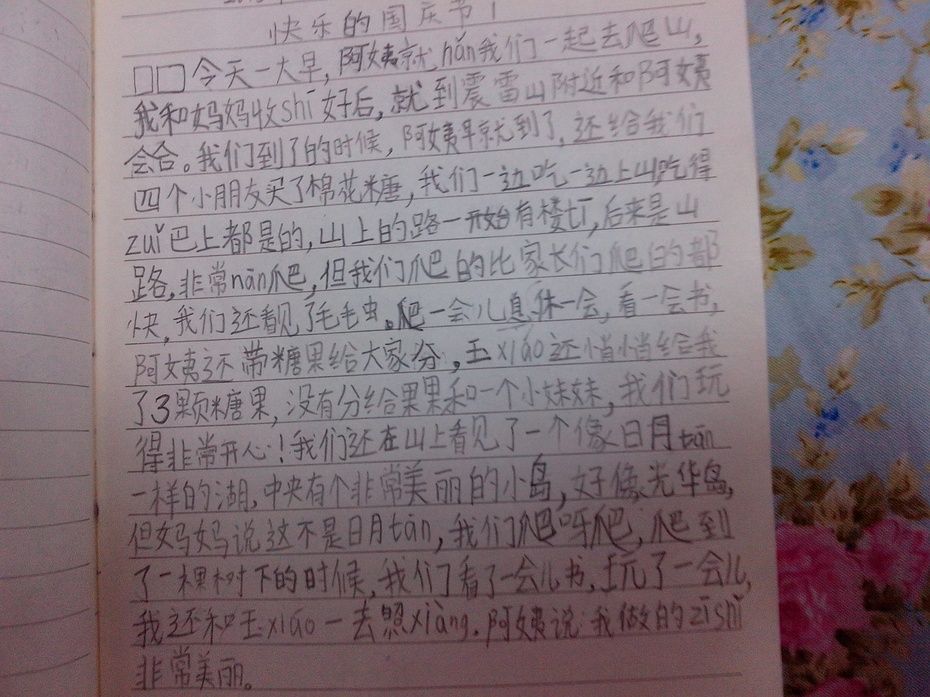 快乐的国庆节1
□□今天一大早，阿姨就hǎn我们一起去爬山，
我和妈妈收shí好后，就到震雷山附近和阿姨
会合。我们到了的时候，阿姨早就到了，还给我们
四个小朋友买了棉花糖，我们一边吃一边上山，吃得
zuǐ巴上都是的，山上的路一开始有楼tī，后来是山
路，非常nán爬，但我们爬的比家长们爬的都
快，我们还看见了毛毛虫。爬一会儿息休一会，看一会书，
阿姨还带糖果给大家分，玉xiáo还悄悄给我
了3颗糖果，没有分给果果和一个小妹妹，我们玩
得非常开心！我们还在山上看见了一个像日月tān
一样的湖，中央有个非常美丽的小岛，好像光华岛，
但妈妈说这不是日月tān，我们爬呀爬，爬到
了一棵树下的时候，我们看了一会儿书，玩了一会儿，
我还和玉xiáo一去照xiàng，阿姨说：我做的zīshì
非常美丽。